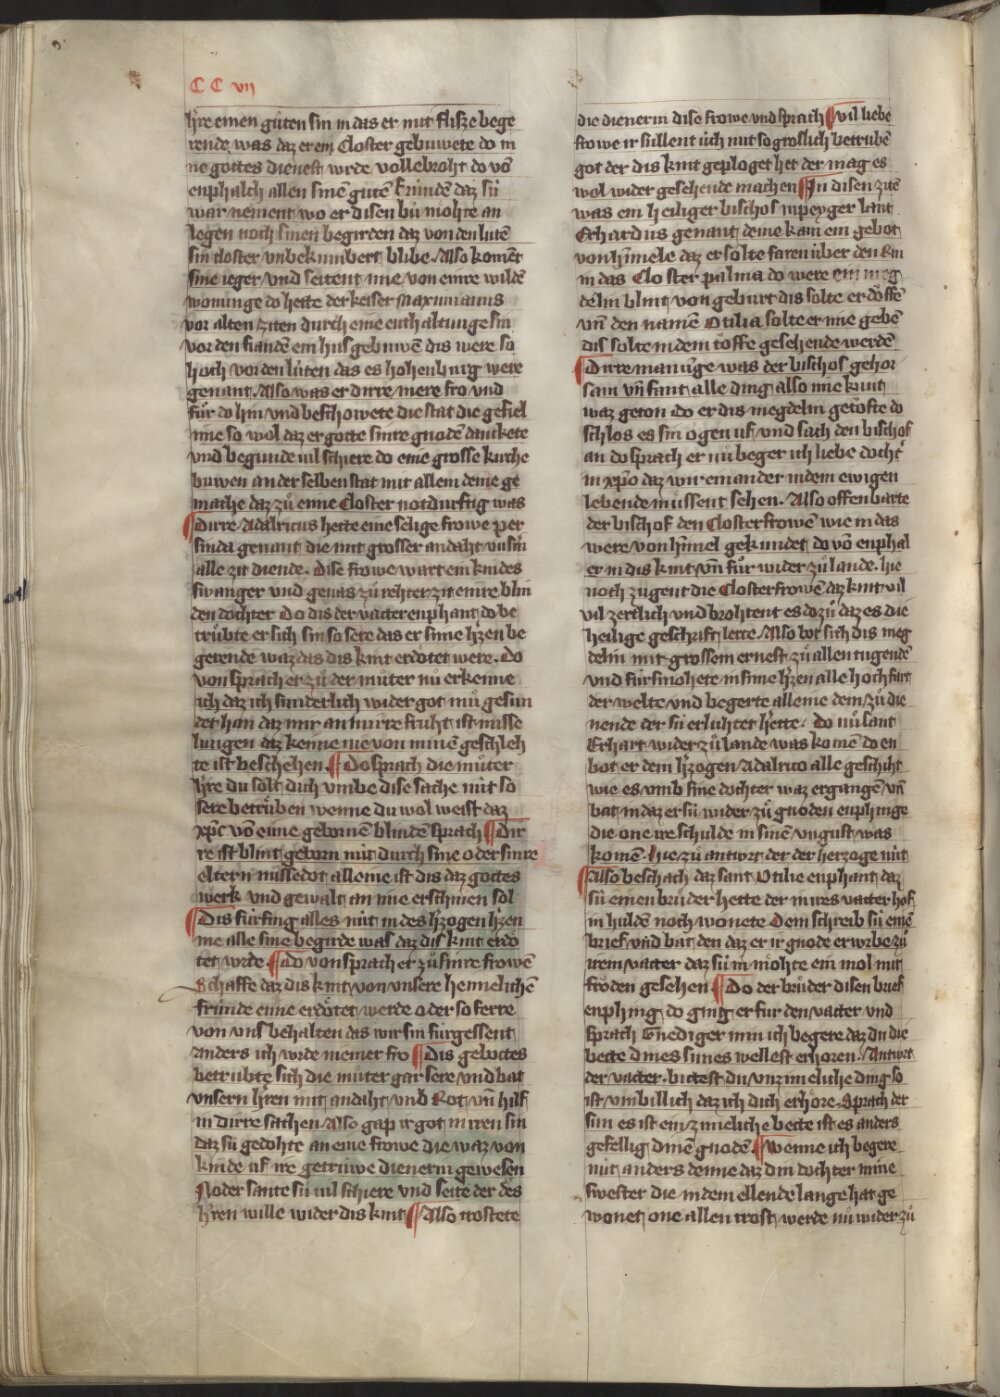 CC vii
h̄re einen gůten sin in das er mit flisze bege
rende was daz er ein Closter gebuwete do in
ne gottes dienest wrde vollebroht do vō
enphalch allen sinē gůtē frůndē daz sů
war nement wo er disen bů mohte an
legen noch sinen begirden daz von den lutē
sin closter vnbekumbert blibe. Also komēt
sine ieger vnd seitent ime von einre wildē
wonunge do hette der keiser maximianus
vor alten ziten durch eine enthaltunge sin
vor den fiandē ein hus gebuwē dis were so
hoch vor den lůten das es hohenburg were
genant. Also was er dirre mere fro vnd
fůr do hin vnd beschowete die stat die gefiel
ime so wol daz er gotte sinre gnodē danckete
vnd begunde vil schiere do eine grosse kirche
buwen an der selben stat mit allem deme ge
mache daz zů eime Closter notdurftig was
Dirre Adalricus hette eine selige frowe per
sinda genant die mit grosser andaht vnsm̄
alle zit diende. Dise frowe wart ein kindes
swanger vnd genas zů rehter zit einre blin
den dochter Do dis der vatter enphant do be
trůbte er sich sin so sere das er sinne h̄zen be
gerende waz das dis kint erdötet were. Do
von sprach er zů der můter nů erkenne
ich daz ich sunderlich wider got mů gesun
det han daz mir an minre fruht ist misse
lungen daz keime me von minē geschleh
te ist beschehen Do sprach die můter
h̄re du solt dich vmbe dise sache nůt so
sere betrůben wenne du wol weist daz
xp̄c vō eime gebornē blindē sprach Dir
re ist blint geborn nůt durch sine oder sinre
eltern missedot alleine ist dis daz gottes
werk vnd gewalt an ime erschinen sol
Dis fürfing alles nůt in des h̄zogen h̄zen
me alle sine begirde was daz dis kint erdö
tet wrde Do von sprach er zů sinre frowē
Schaffe daz dis kint von vnsere heimelichē
frůnde eime erdötet werde oder so ferre
von vns behalten das wir sin fürgessent
anders ich wrde niemer fro Dis gebottes
betrůbte sich die můter gar sere vnd bat
vnsern h̄ren mit andaht vmb Rot vn̄ hilf
in dirre sachen Also gap ir got in iren sin
daz sů gedohte an eine frowe die waz von
kinde uf ire getrüwe dienerin gewesen
Noder sante sů vil schiere vnd seite der des
h̄ren wille wider dis kint Also trostete
die dienerin dise frowe vnd sprach vil liebe
frowe ir süllent üch nůt so groslich betrůbē
got der dis kint geploget het der mag es
wol wider gesehende machen In disen zitē
was ein heiliger bischof in peyger lant
Erhardus genant deme kam ein gebot
von hīmele daz er solte faren über den Rin
in das Closter palma do were ein meg
delin blint von geburt dis solte er dōffē
vn̄ den namē Otilia solte er ime gebē
dis solte in dem toffe gesehende werdē
Dirre manūge was der bischof gehor
sam vn̄ fant alle ding also ime kunt
waz geton do er dis megdelin getöfte do
schlos es sin ögen uf vnd sach den bischof
an do sprach er nů beger ich liebe docht
in xp̄o daz wir einander in dem ewigen
lebende můssent sehen. Also offenbarte
der bischof den Closterfrowē wie in das
were von hīmel gekundet do vō enphal
er in dis kint vn̄ fůr wider zů lande. hie
noch zugent die Closterfrowē daz kint vil
vil zertlich vnd brohtent es dozů daz es die
heilige geschrift lerte. Also bot sich dis meg
delin mit grossem ernest zů allen tugendē
vnd fürsmohete in sime h̄zen alle hochfart
der welte vnd begerte alleine dem zů die
nende der sů erluhtet hette. Do nů sant
Erhart wider zů lande was komē do en
bot er dem h̄zogen Adalrico alle geschiht
wie es vmb sine dochter waz ergangē vn̄
bat in daz er sů wider zů gnoden enphinge
die one ire schulde in sinē vngust was
komē. hie zů antwrt der der herzoge nůt
Also beschach daz sant Otilie enphant daz
sů ein brůder hette der in ires vatter hof
in huldē noch wonete Dem schreib sů einē
brief vnd bat den daz er ir gnode erwrbe zů
irem vatter daz sů in möhte ein mol mit
fröden gesehen Do der brůder disen brief
enphing do ging er für den vatter vnd
sprach Gnediger min ich begere daz du die
bette dines sunes wellest erhören. Antwrt
der vatter. bittest du vnzimeliche ding so
ist vmbillich daz ich dich erhöre. Sprach der
sun es ist ein zimeliche bette ist es anders
gefellig dinē gnodē wenne ich begere
nůt anders denne daz din dochter mine
swester die in dem ellende lange hat ge
wonet one allen trost werde nů wider zů